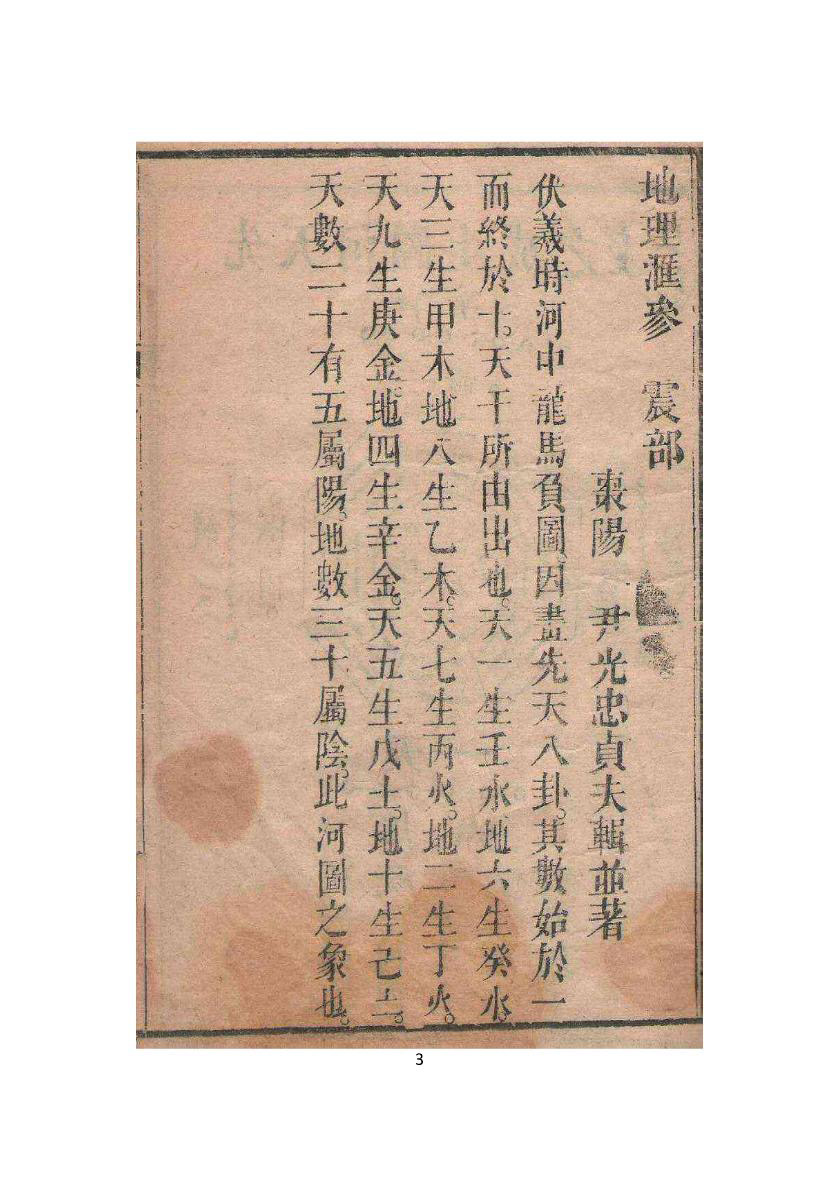 地理滙參　震部
棗陽　尹光忠貞夫輯並著
伏羲時河中龍馬負圖。因畫先天八卦。其數始於一
而終於十。天干所由出也。天一生壬水地六生癸水。
天三生甲木地八生乙木。天七生丙火。地二生丁火。
天九生庚金地四生辛金。天五生戊土。地十生己土。
天數二十有五屬陽。地數三十屬陰。此河圖之象也。
3